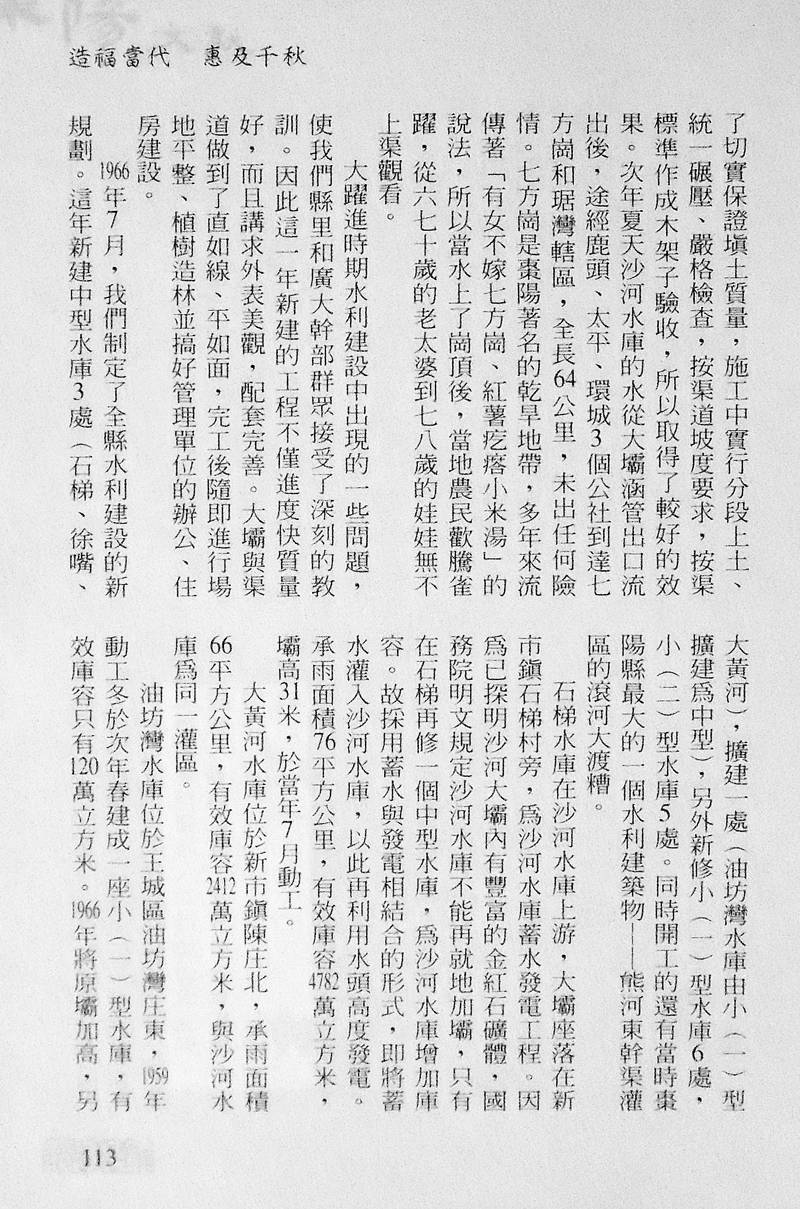 造福當代 惠及千秋
了切實保證填土質量，施工中實行分段上土、
統一碾壓、嚴格檢查，按渠道坡度要求，按渠
標準作成木架子驗收，所以取得了較好的效
果。次年夏天沙河水庫的水從大壩涵管出口流
出後，途經鹿頭、太平、環城3個公社到達七
方崗和琚灣轄區，全長64公里，未出任何險
情。七方崗是棗陽著名的乾旱地帶，多年來流
傳著「有女不嫁七方崗、紅薯疙瘩小米湯」的
說法，所以當水上了崗頂後，當地農民歡騰雀
躍，從六七十歲的老太婆到七八歲的娃娃無不
上渠觀看。
大躍進時期水利建設中出現的一些問題，
使我們縣里和廣大幹部群眾接受了深刻的教
訓。因此這一年新建的工程不僅進度快質量
好，而且講求外表美觀，配套完善。大壩與渠
道做到了直如線、平如面，完工後隨即進行場
地平整、植樹造林並搞好管理單位的辦公、住
房建設。
1966年7月，我們制定了全縣水利建設的新
規劃。這年新建中型水庫3處（石梯、徐嘴、
大黃河），擴建一處（油坊灣水庫由小（一）型
擴建爲中型），另外新修小（一）型水庫6處，
小（二）型水庫5處。同時開工的還有當時棗
陽縣最大的一個水利建築物——熊河東幹渠灌
區的滾河大渡糟。
石梯水庫在沙河水庫上游，大壩座落在新
市鎮石梯村旁，爲沙河水庫蓄水發電工程。因
爲已探明沙河大壩內有豐富的金紅石礦體，國
務院明文規定沙河水庫不能再就地加壩，只有
在石梯再修一個中型水庫，爲沙河水庫增加庫
容。故採用蓄水與發電相結合的形式，即將蓄
水灌入沙河水庫，以此再利用水頭高度發電。
承雨面積76平方公里，有效庫容4782萬立方米，
壩高31米，於當年7月動工。
大黃河水庫位於新市鎮陳庄北，承雨面積
66平方公里，有效庫容2412萬立方米，與沙河水
庫爲同一灌區。
油坊灣水庫位於王城區油坊灣庄東，1959年
動工冬於次年春建成一座小（一）型水庫，有
效庫容只有120萬立方米。1966年將原壩加高，另
113